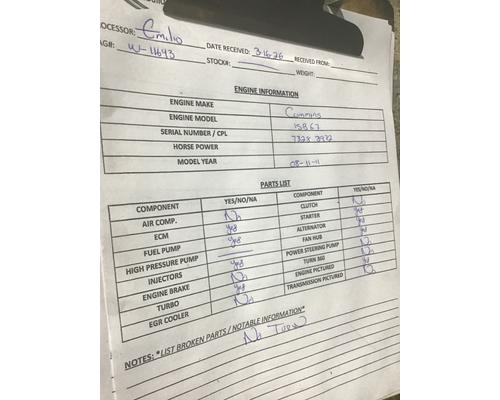 PROCESSOR: Emilio
TAG#: W-11693 DATE RECEIVED: 3-16-26 RECEIVED FROM:
STOCK#: WEIGHT:
ENGINE INFORMATION
ENGINE MAKE Cummins
ENGINE MODEL ISB 6.7
SERIAL NUMBER / CPL
HORSE POWER
MODEL YEAR 08-11-11
PARTS LIST
COMPONENT YES/NO/NA COMPONENT YES/NO/NA
AIR COMP. No CLUTCH No
ECM yes STARTER yes
FUEL PUMP yes ALTERNATOR yes
HIGH PRESSURE PUMP FAN HUB
INJECTORS yes POWER STEERING PUMP No
ENGINE BRAKE No TURN 360
TURBO yes ENGINE PICTURED
EGR COOLER No TRANSMISSION PICTURED
NOTES: *LIST BROKEN PARTS / NOTABLE INFORMATION*
No